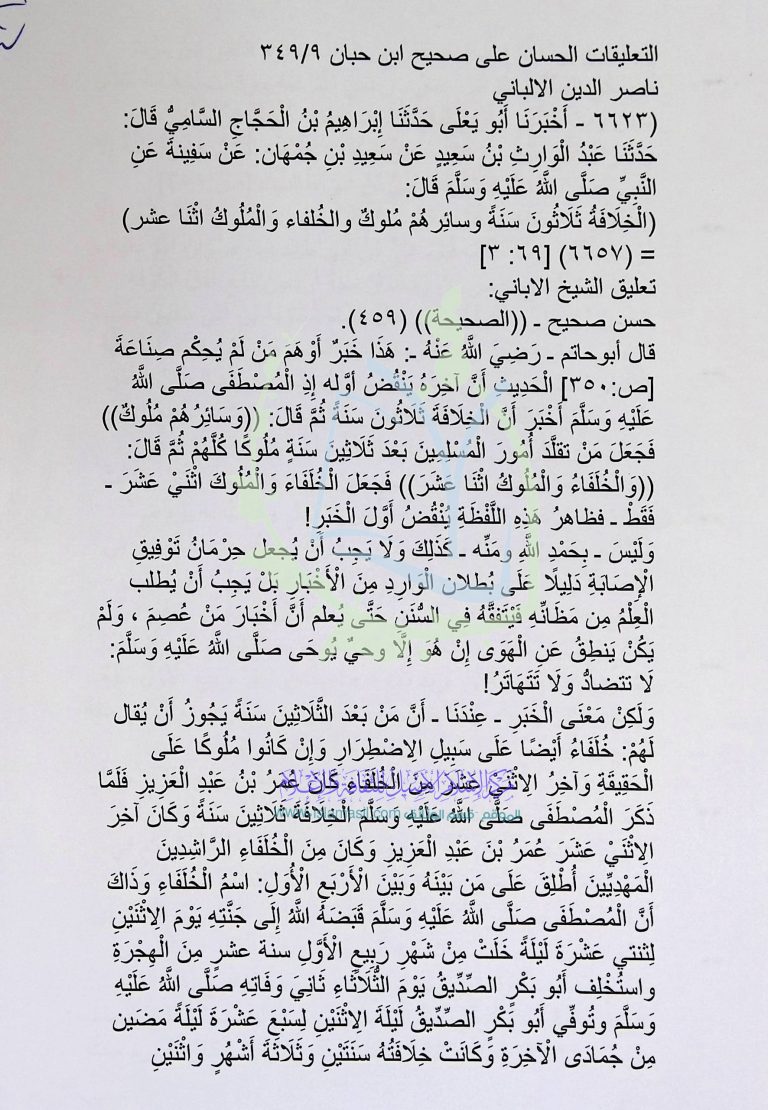 التعليقات الحسان على صحيح ابن حبان ٣٤٩/٩
ناصر الدين الالباني
(٦٦٢٣ ـ أَخْبَرَنَا أَبُو يَعْلَى حَدَّثَنَا إِبْرَاهِيمُ بْنُ الْحَجَّاجِ السَّامِيُّ قَالَ:
حَدَّثَنَا عَبْدُ الْوَارِثِ بْنُ سَعِيدٍ عَنْ سَعِيدِ بْنِ جُمْهَان: عَنْ سَفِينةَ عَنِ
النَّبِيِّ صَلَّى اللَّهُ عَلَيْهِ وَسَلَّمَ قَالَ:
(الْخِلَافَةُ ثَلَاثُونَ سَنَةً وسائِرهُمْ مُلوكٌ والخُلفاء وَالْمُلُوكُ اثْنَا عشر)
= (٦٦٥٧) [٦٩: ٣]
تعليق الشيخ الاباني:
حسن صحيح ـ ((الصحيحة)) (٤٥٩).
قال أبوحاتم ـ رَضِيَ اللَّهُ عَنْهُ ـ: هَذَا خَبَرٌ أَوْهَمَ مَنْ لَمْ يُحِكْم صِنَاعَةَ
[ص:٣٥٠] الْحَدِيثِ أَنَّ آخِرَهُ يَنْقُضُ أوَّله إِذِ الْمُصْطَفَى صَلَّى اللَّهُ
عَلَيْهِ وَسَلَّمَ أَخْبَرَ أَنَّ الْخِلَافَةَ ثَلَاثُونَ سَنَةً ثُمَّ قَالَ: ((وَسَائِرُهُمْ مُلُوكٌ))
فَجَعَلَ مَنْ تقلَّدَ أُمُورَ الْمُسْلِمِينَ بَعْدَ ثَلَاثِينَ سَنَةٍ مُلُوكًا كُلَّهُمْ ثُمَّ قَالَ:
((وَالْخُلَفَاءُ وَالْمُلُوكُ اثْنَا عَشَرَ)) فَجَعَلَ الْخُلَفَاءَ وَالْمُلُوكَ اثْنَيْ عَشَرَ ـ
فَقَطْ ـ فظاهرُ هَذِهِ اللَّفْظَةِ يُنْقُضُ أَوَّلَ الْخَبَرِ!
وَلَيْسَ ـ بِحَمْدِ اللَّهِ ومَنِّه ـ كَذَلِكَ وَلَا يَجِبُ أَنْ يُجعل حِرْمَانُ تَوْفِيقِ
الْإِصَابَةِ دَلِيلًا عَلَى بُطلان الْوَارِدِ مِنَ الْأَخْبَارِ بَلْ يَجِبُ أَنْ يُطلب
الْعِلْمُ مِن مَظَانِّهِ فَيُتَفَقَّهُ فِي السُّنَن حَتَّى يُعلم أَنَّ أَخْبَارَ مَنْ عُصِمَ ، وَلَمْ
يَكُنْ يَنطِقُ عَنِ الْهَوَى إِنْ هُوَ إِلَّا وحيٌ يُوحَى صَلَّى اللَّهُ عَلَيْهِ وَسَلَّمَ:
لَا تتضادُّ وَلَا تَتَهَاتَرُ!
وَلَكِنْ مَعْنَى الْخَبَرِ ـ عِنْدَنَا ـ أَنَّ مَنْ بَعْدَ الثَّلَاثِينَ سَنَةً يَجُوزُ أَنْ يُقال
لَهُمْ: خُلَفَاءُ أَيْضًا عَلَى سَبِيلِ الِاضْطِرَارِ وَإِنْ كَانُوا مُلُوكًا عَلَى
الْحَقِيقَةِ وَآخِرُ الِاثْنَيْ عَشَرَ مِنَ الْخُلَفَاءِ كَانَ عُمَرُ بْنُ عَبْدِ الْعَزِيزِ فَلَمَّا
ذَكَرَ الْمُصْطَفَى صَلَّى اللَّهُ عَلَيْهِ وَسَلَّمَ الْخِلَافَةَ ثَلَاثِينَ سَنَةً وَكَانَ آخِرَ
الِاثْنَيْ عَشَرَ عُمَرُ بْنَ عَبْدِ الْعَزِيزِ وَكَانَ مِنَ الْخُلَفَاءِ الرَّاشِدِينَ
الْمَهْدِيِّينَ أُطْلِقَ عَلَى مَن بَيْنَهُ وَبَيْنَ الْأَرْبَعِ الْأُوَلِ: اسْمُ الْخُلَفَاءِ وَذَاكَ
أَنَّ الْمُصْطَفَى صَلَّى اللَّهُ عَلَيْهِ وَسَلَّمَ قَبَضَهُ اللَّهُ إِلَى جَنَّتِهِ يَوْمَ الِاثْنَيْنِ
لِثنتي عَشْرَةَ لَيْلَةً خَلَتْ مِنْ شَهْرِ رَبِيعِ الأَوَّلِ سنة عشرٍ مِنَ الْهِجْرَةِ
واستُخْلِف أَبُو بَكْر الصِّدِّيقُ يَوْمَ الثُّلَاثَاءِ ثَانِيَ وَفَاتِهِ صَلَّى اللَّهُ عَلَيْهِ
وَسَلَّمَ وتُوفِّي أَبُو بَكْرٍ الصِّدِّيقُ لَيْلَةَ الِاثْنَيْنِ لِسَبْعَ عَشْرَةَ لَيْلَةً مَضَين
مِنْ جُمَادَى الْآخِرَةِ وَكَانَتْ خِلَافَتُهُ سَنَتَيْنِ وَثَلَاثَةَ أَشْهُرٍ وَاثْنَيْنِ